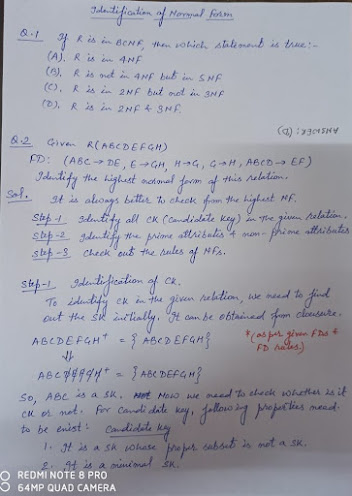 Identification of Normal Form
Q.1 If R is in BCNF, then which statement is true:-
(A). R is in 4NF
(B). R is not in 4NF but in 5NF
(C). R is in 2NF but not in 3NF
(D). R is in 2NF & 3NF.
ANSWER: (D)
Q.2 Given R(ABCDEFGH)
FD: (ABC → DE, E → GH, H → G, G → H, ABCD → EF)
Identify the highest normal form of this relation.
Sol. It is always better to check from the highest NF.
Step-1 Identify all CK (Candidate Key) in the given relation.
Step-2 Identify the prime attributes & non-prime attributes
Step-3 Check out the rules of NFs.
Step-1 Identification of CK.
To identify CK in the given relation, we need to find
out the SK initially. It can be obtained from closure.
ABCDEFGH+ = {ABCDEFGH} *(as per given FDs &
FD rules)
⇓
ABCDEFGH+ = {ABCDEFGH}
So, ABC is a SK. Now we need to check whether is it
CK or not. For candidate key, following properties need
to be exist: Candidate Key
1. It is a SK whose proper subset is not a SK.
2. It is a minimal SK.
REDMI NOTE 8 PRO
64MP QUAD CAMERA